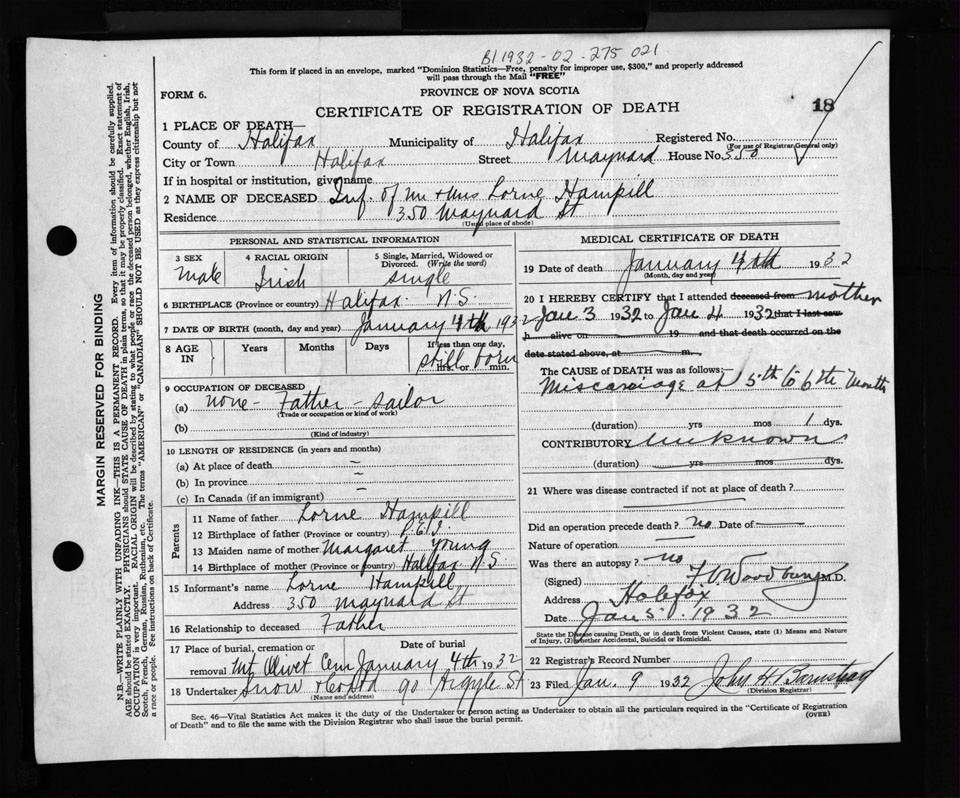 B1 1932-02-275 021
This form if placed in an envelope, marked "Dominion Statistics—Free, penalty for improper use, $300," and properly addressed
will pass through the Mail "FREE"
FORM 6.
PROVINCE OF NOVA SCOTIA
CERTIFICATE OF REGISTRATION OF DEATH
18
1 PLACE OF DEATH—
County of Halifax Municipality of Halifax Registered No.
(For use of Registrar General only)
City or Town Halifax Street Maynard House No. 350
If in hospital or institution, give name
2 NAME OF DECEASED Inf. of Mr + Mrs Lorne Hampill
Residence 350 Maynard St
(Usual place of abode)
PERSONAL AND STATISTICAL INFORMATION
3 SEX Male
4 RACIAL ORIGIN Irish
5 Single, Married, Widowed or Divorced. (Write the word) single
6 BIRTHPLACE (Province or country) Halifax N.S.
7 DATE OF BIRTH (month, day and year) January 4th 1932
8 AGE IN Years Months Days If less than one day, hrs. or min. still born
9 OCCUPATION OF DECEASED
(a) none - Father - sailor
(Trade or occupation or kind of work)
(b)
(Kind of industry)
10 LENGTH OF RESIDENCE (in years and months)
(a) At place of death —
(b) In province —
(c) In Canada (if an immigrant) —
Parents
11 Name of father Lorne Hampill
12 Birthplace of father (Province or country) P.E.I.
13 Maiden name of mother Margaret Young
14 Birthplace of mother (Province or country) Halifax N.S
15 Informant's name Lorne Hampill
Address 350 Maynard St
16 Relationship to deceased Father
17 Place of burial, cremation or removal Mt Olivet Cem
Date of burial January 4th 1932
18 Undertaker Snow + Co Ltd 90 Argyle St
(Name and address)
MEDICAL CERTIFICATE OF DEATH
19 Date of death January 4th 1932
(Month, day and year)
20 I HEREBY CERTIFY that I attended deceased from mother
Jan 3 1932 to Jan 4 1932 that I last saw
h alive on 19 and that death occurred on the
date stated above, at m.
The CAUSE OF DEATH was as follows:—
Miscarriage at 5th to 6th Month
(duration) yrs mos 1 dys.
CONTRIBUTORY Unknown
(duration) yrs mos dys.
21 Where was disease contracted if not at place of death?
Did an operation precede death? no Date of
Nature of operation —
Was there an autopsy? no
(Signed) Woodbury M.D.
Address Halifax
Date Jan 5 1932
State the Disease causing Death, or in death from Violent Causes, state (1) Means and Nature
of Injury, (2) whether Accidental, Suicidal or Homicidal.
22 Registrar's Record Number
23 Filed Jan. 9 1932 John H Barnstead
(Division Registrar)
Sec. 46—Vital Statistics Act makes it the duty of the Undertaker or person acting as Undertaker to obtain all the particulars required in the "Certificate of Registration
of Death" and to file the same with the Division Registrar who shall issue the burial permit.
(OVER)
MARGIN RESERVED FOR BINDING
N.B.—WRITE PLAINLY WITH UNFADING INK—THIS IS A PERMANENT RECORD. Every item of information should be carefully supplied.
AGE should be stated EXACTLY. PHYSICIANS should STATE CAUSE OF DEATH in plain terms, so that it may be properly classified. Exact statement of
OCCUPATION is very important. RACIAL ORIGIN will be described by stating to what people or race the deceased person belonged, whether English, Irish,
Scotch, French, German, Russian, Ruthenian, etc. The terms "AMERICAN" or "CANADIAN" SHOULD NOT BE USED as they express citizenship but not
a race or people. See instructions on back of Certificate.